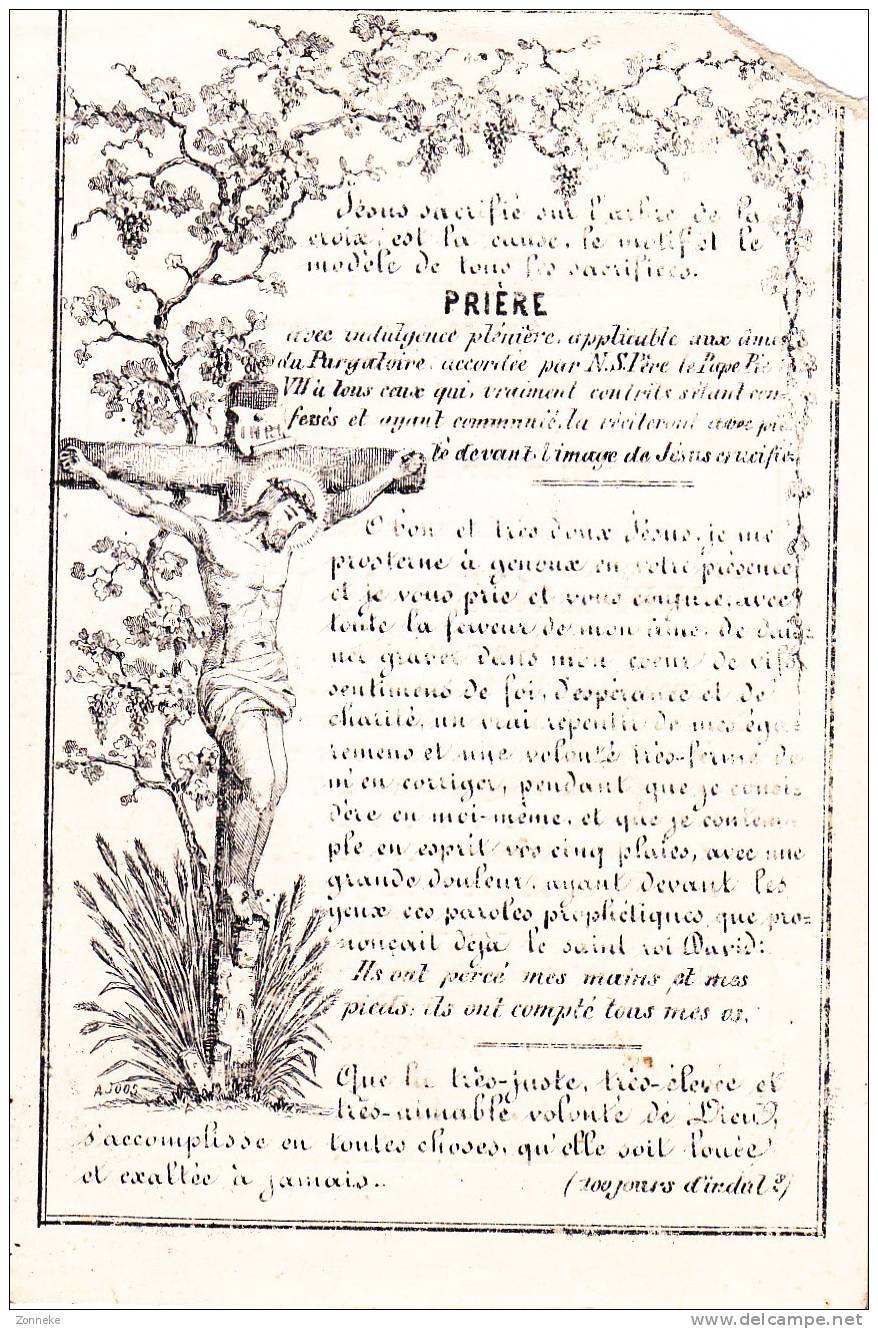 Jésus sacrifié sur l'arbre de la
croix, est la cause, le motif et le
modèle de tous les sacrifices.
PRIÈRE
avec indulgence plénière, applicable aux âmes
du Purgatoire, accordée par N.S.Père le Pape Pie
VII à tous ceux qui, vraiment contrits s'étant con-
fessés et ayant communié, la réciteront avec pié-
té devant l'image de Jésus crucifié.
INRI
O bon et très doux Jésus, je me
prosterne à genoux en votre présence
et je vous prie et vous conjure, avec
toute la ferveur de mon âme, de dai=
gner graver dans mon coeur de vifs
sentimens de foi, d'espérance et de
charité, un vrai repentir de mes éga=
remens et une volonté très-ferme de
m'en corriger, pendant que je consi=
dère en moi-même, et que je contem=
ple en esprit vos cinq plaies, avec une
grande douleur, ayant devant les
yeux ces paroles prophétiques que pro=
nonçait déjà le saint roi David:
Ils ont percé mes mains et mes
pieds; ils ont compté tous mes os.
A.JOOS
Que la très-juste, très-élevée et
très-aimable volonté de Dieu,
s'accomplisse en toutes choses, qu'elle soit louée
et exaltée à jamais.. (100 jours d'indul.)
Zonneke
delcampe.net